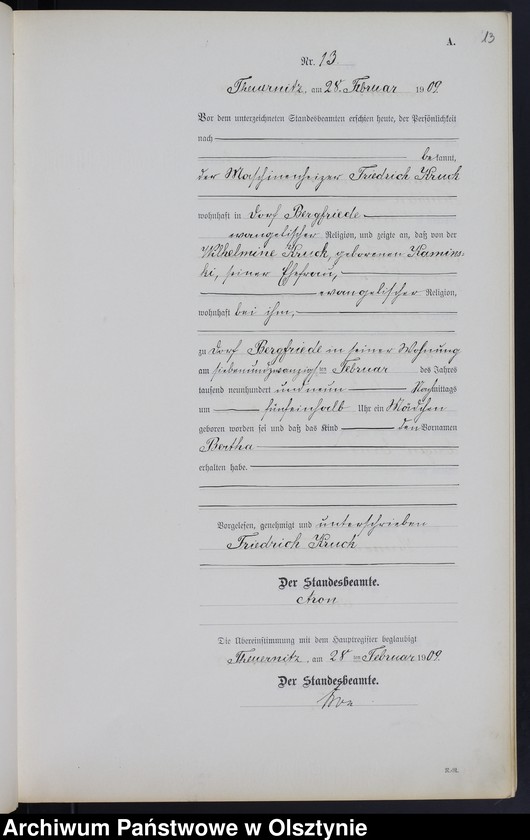 A.
13
Nr. 13
Theuernitz, am 28. Februar 1909.
Vor dem unterzeichneten Standesbeamten erschien heute, der Persönlichkeit
nach
bekannt,
der Maschinenheizer Friedrich Kruck
wohnhaft in Dorf Bergfriede
evangelischer Religion, und zeigte an, daß von der
Wilhelmine Kruck, geborenen Kamins-
ki, seiner Ehefrau,
evangelischer Religion,
wohnhaft bei ihm,
zu Dorf Bergfriede in seiner Wohnung
am siebenundzwanzigsten Februar des Jahres
tausend neunhundert und neun Nachmittags
um fünfeinhalb Uhr ein Mädchen
geboren worden sei und daß das Kind den Vornamen
Bertha
erhalten habe.
Vorgelesen, genehmigt und unterschrieben
Friedrich Kruck
Der Standesbeamte.
Die Übereinstimmung mit dem Hauptregister beglaubigt
Theuernitz, am 28 ten Februar 1909.
Der Standesbeamte.
Archiwum Państwowe w Olsztynie